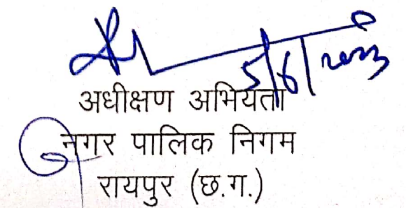 5/6/2023
अधीक्षण अभियंता
नगर पालिक निगम
रायपुर (छ.ग.)